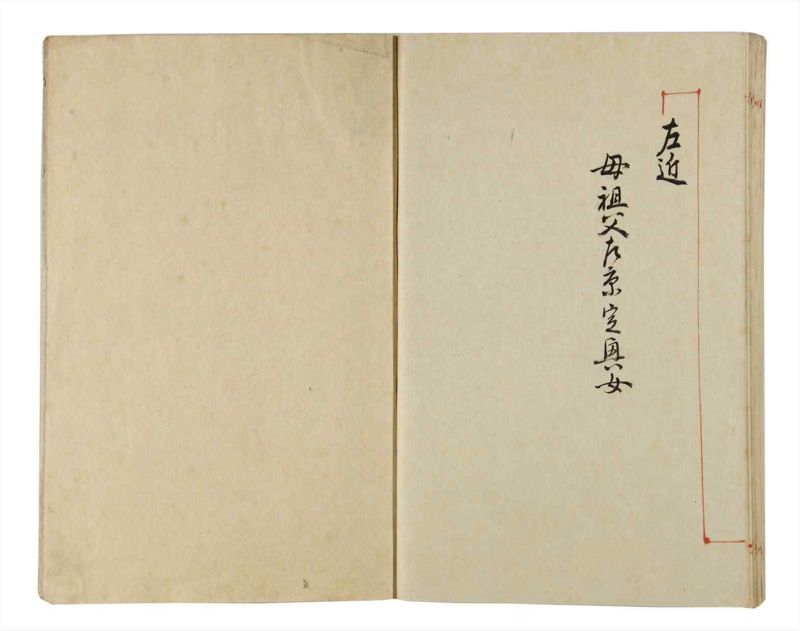 左近
母祖父左京定興女